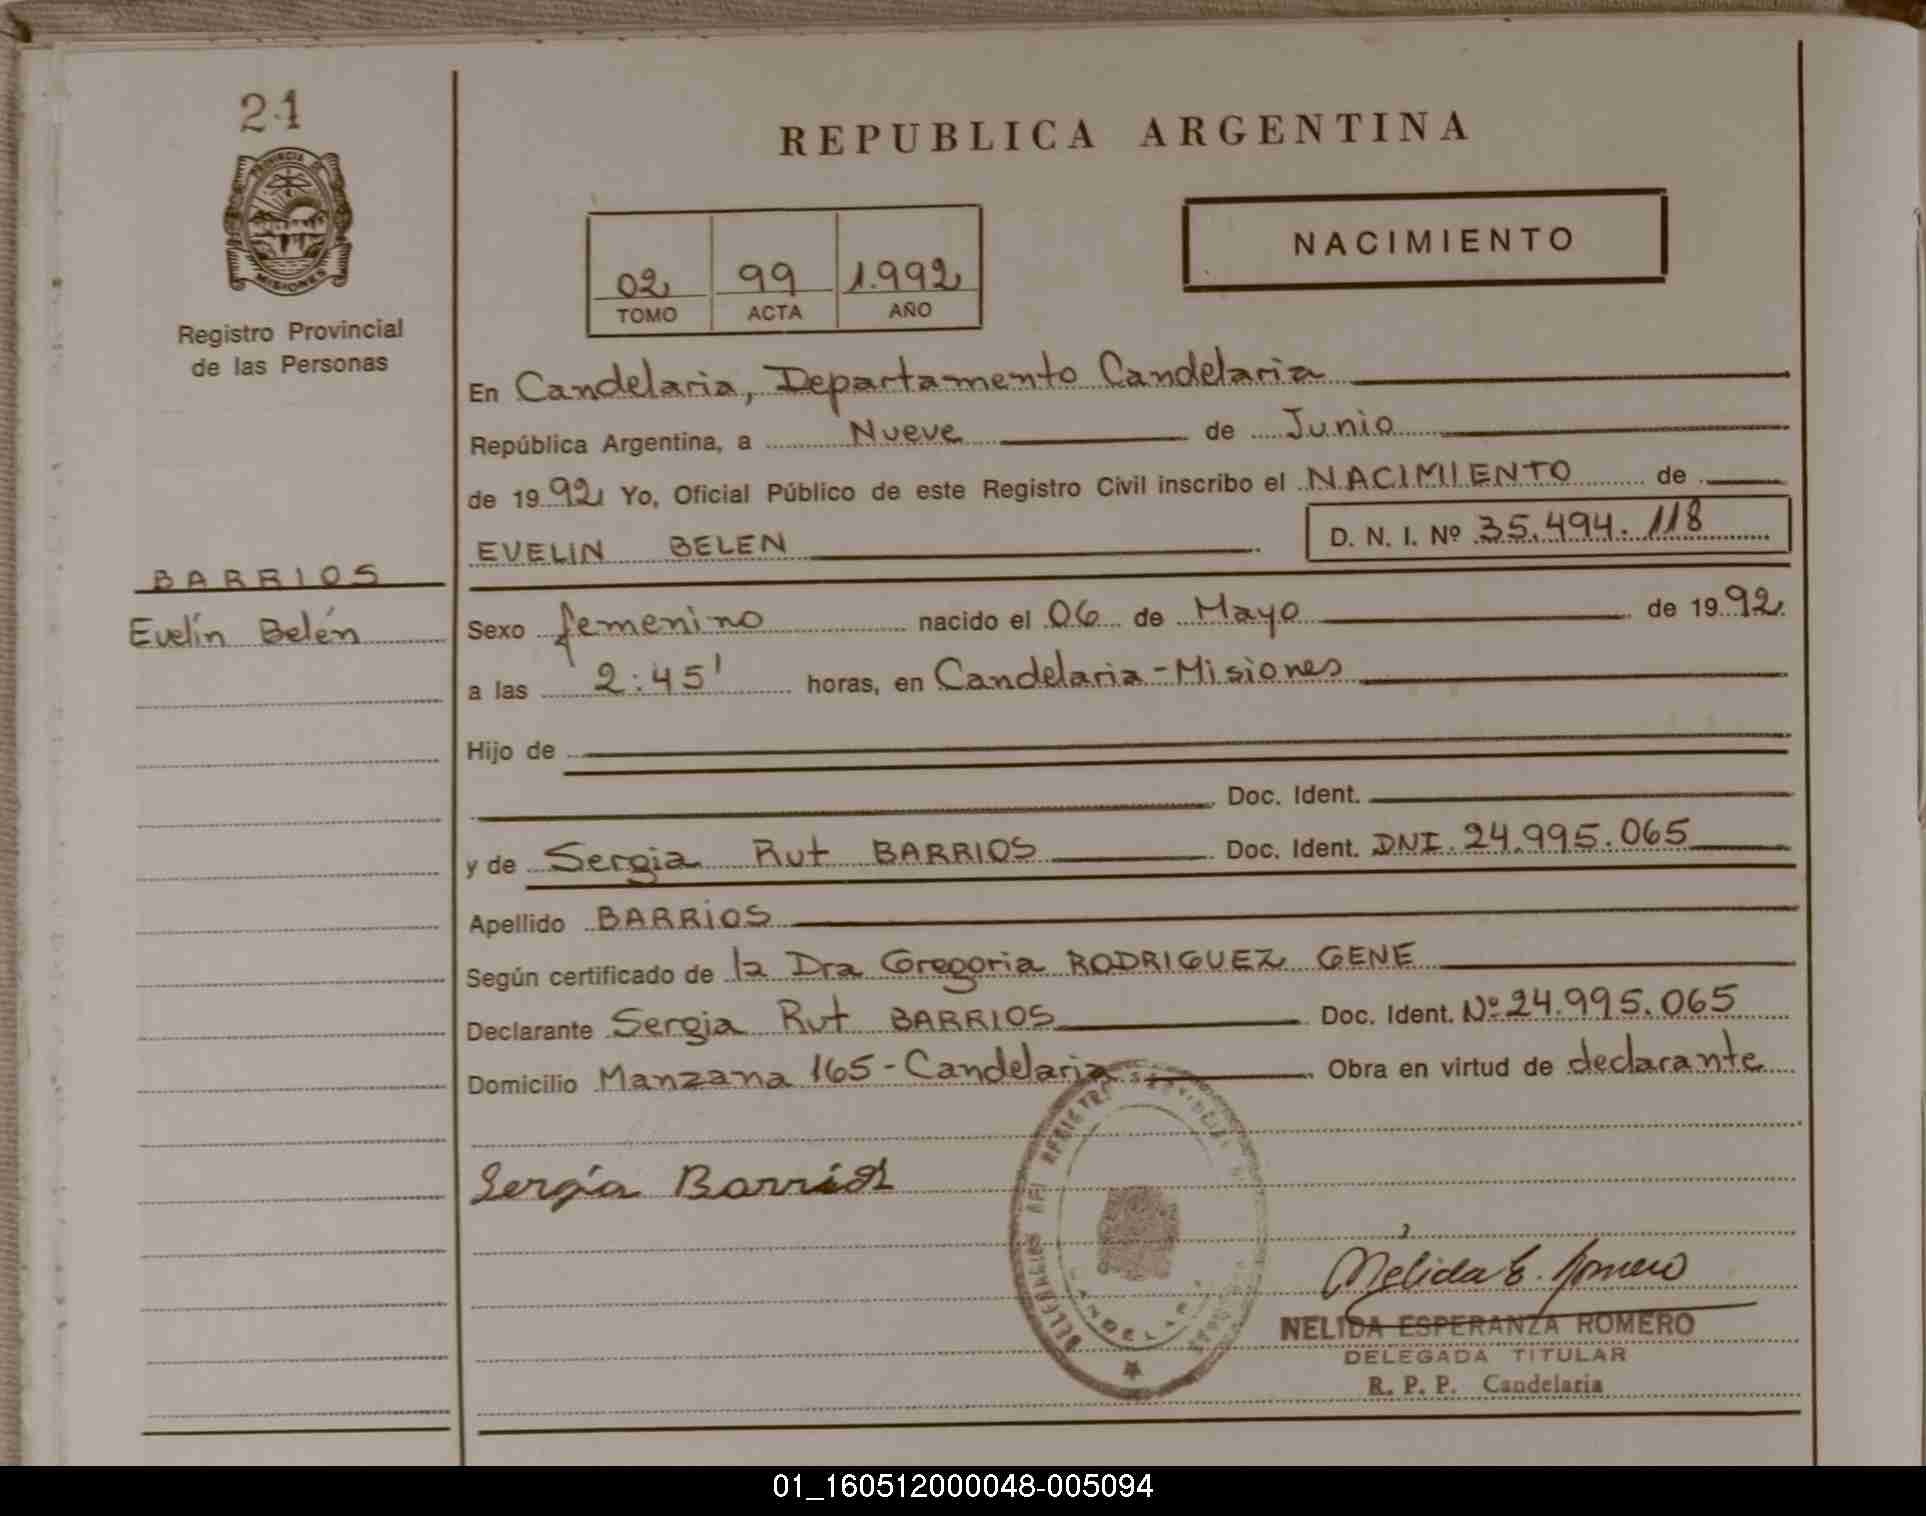 21
PROVINCIA
MISIONES
Registro Provincial
de las Personas
BARRIOS
Evelín Belén
REPUBLICA ARGENTINA
NACIMIENTO
02 99 1.992
TOMO ACTA AÑO
En Candelaria, Departamento Candelaria
República Argentina, a Nueve de Junio
de 1992 Yo, Oficial Público de este Registro Civil inscribo el NACIMIENTO de
EVELIN BELEN D. N. I. Nº 35.494.118
Sexo femenino nacido el 06 de Mayo de 1992.
a las 2:45' horas, en Candelaria-Misiones
Hijo de
Doc. Ident.
y de Sergia Rut BARRIOS Doc. Ident. DNI 24.995.065
Apellido BARRIOS
Según certificado de la Dra Gregoria RODRIGUEZ GENE
Declarante Sergia Rut BARRIOS Doc. Ident. Nº 24.995.065
Domicilio Manzana 165-Candelaria Obra en virtud de declarante
Sergia Barrios
Nelida E. Romero
NELIDA ESPERANZA ROMERO
DELEGADA TITULAR
R. P. P. Candelaria
01_160512000048-005094